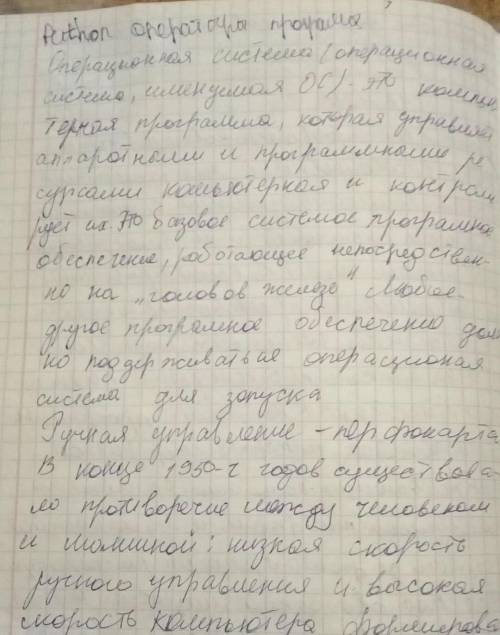 Python операторы програма
Операционная система (операционная
система, именуемая ОС) - это компью
терная программа, которая управляет
аппаратными и программными ре
сурсами компьютерная и контроли
рует их. Это базовое системое програмное
обеспечение, работающее непосредствен-
но на "головов железо" Любое
другое програмное обеспечению долж
но поддерживаться операционая
система для запуска
Ручная управление - перфокарта
В конце 1950-х годов существова
ло противоречие между человеком
и машиной: низкая скорость
ручного управления и высокая
скорость компьютера